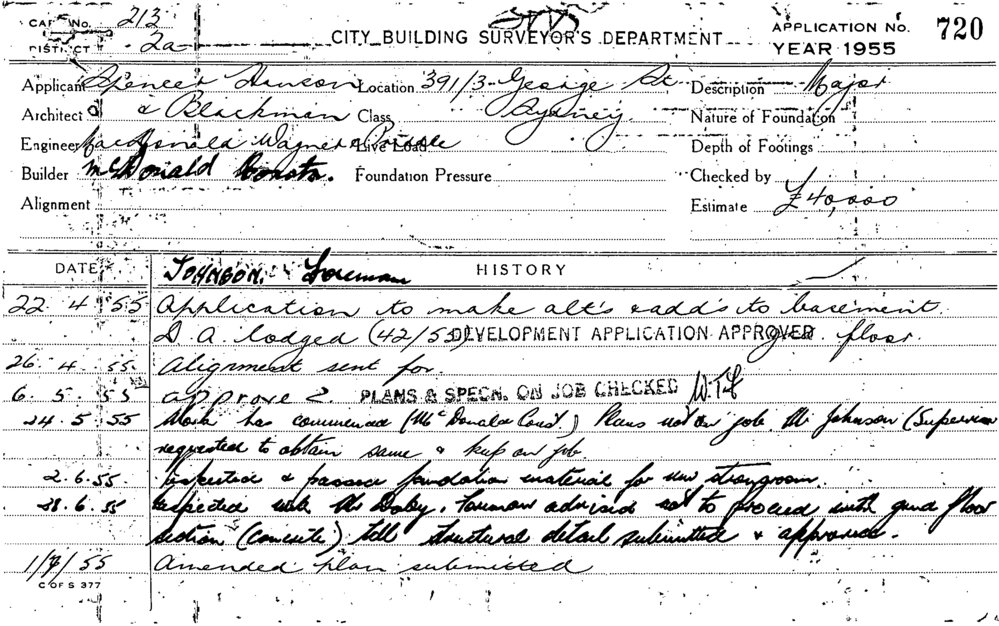 CARD No. 213
DISTRICT 2a
CITY BUILDING SURVEYOR'S DEPARTMENT
APPLICATION No. 720
YEAR 1955
Applicant Spencer Hanson Location 391/3 George St Description Major
Architect & Blackman Class Sydney Nature of Foundation
Engineer MacDonald Wagner & Priddle Live Load Depth of Footings
Builder McDonald Const. Foundation Pressure Checked by
Alignment Estimate £40,000
DATE JOHNSON. Foreman HISTORY
22.4.55 Application to make alt's & add's to basement
D.A. lodged (42/55) DEVELOPMENT APPLICATION APPROVED floor
26.4.55 Alignment sent for
6.5.55 approved PLANS & SPECN. ON JOB CHECKED
24.5.55 Work has commenced (McDonald Const) Plans not on job Mr Johnson (Supervisor
requested to obtain same & keep on job
2.6.55 Inspected & passed foundation material for new strongroom.
28.6.55 Inspected with Mr Doby. Foreman advised not to proceed with grnd floor
section (concrete) till structural detail submitted & approved.
1/7/55 Amended plan submitted
C OF S 377